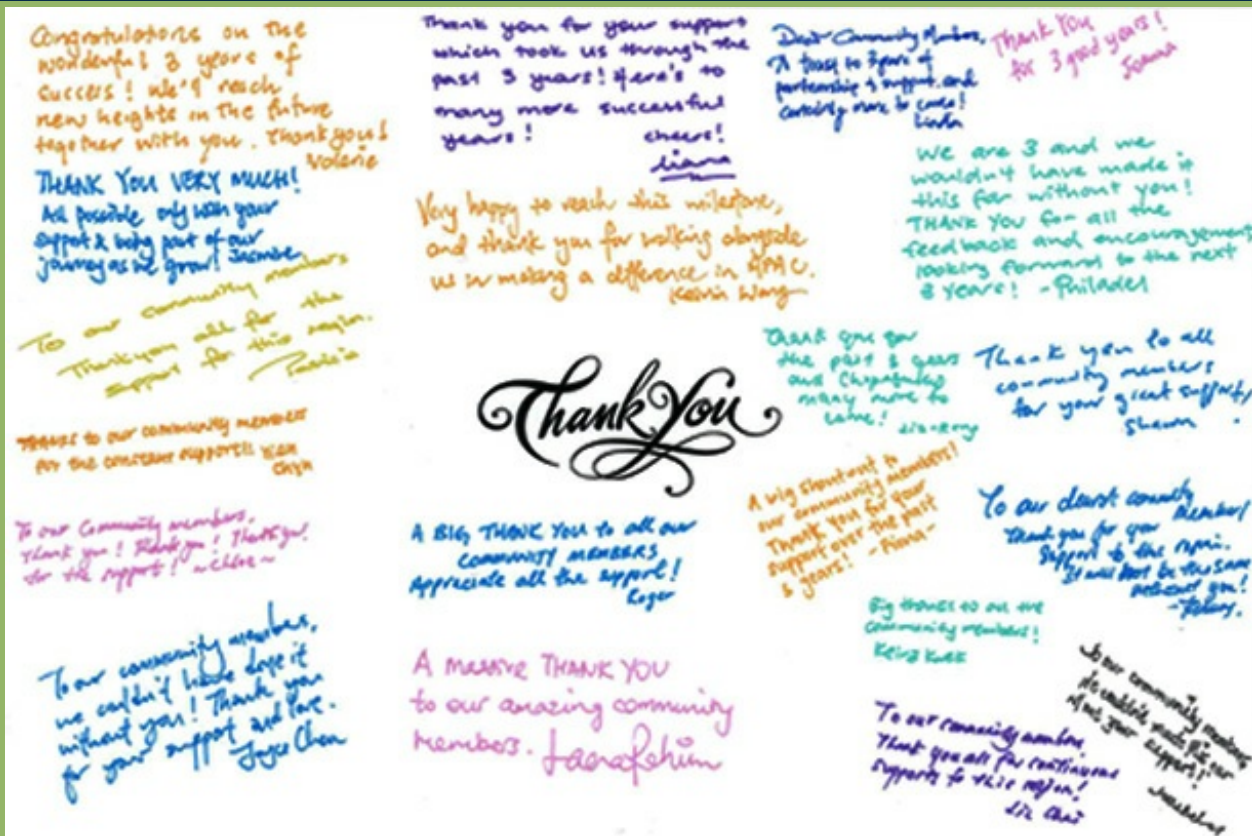 Congratulations on the
wonderful 3 years of
success! We'll reach
new heights in the future
together with you. Thank you!
Valerie
THANK YOU VERY MUCH!
All possible only with your
support & being part of our
journey as we grow! Jasmine
To our community members
Thank you all for the
support for this region.
THANKS to our community members
FOR THE constant support!!
To our Community members,
Thank you! Thank you! Thank you!
for the support! ~Chloe~
To our community members,
we couldn't have done it
without you! Thank you
for your support and love.
Joyce Chen
Thank you for your support
which took us through the
past 3 years! Here's to
many more successful
years!
cheers!
Liana
Very happy to reach this milestone,
and thank you for walking alongside
us in making a difference in APAC.
Kelvin Wong
Thank You
A BIG THANK YOU to all our
COMMUNITY MEMBERS
Appreciate all the support!
Roger
A massive THANK YOU
to our amazing community
members.
Dear Community Members,
A toast to 3 years of
partnership & support and
certainly more to come!
Linda
THANK YOU
for 3 good years!
Joanna
We are 3 and we
wouldn't have made it
this far without you!
THANK YOU for all the
feedback and encouragement
looking forward to the next
3 years! -Philadel
Thank you for
the past 3 years
and (hopefully)
many more to
come!
Thank you to all
community members
for your great support!
Shawn
A big shoutout to
our community members!
Thank you for your
support over the past
3 years! -Fiona-
To our dearest community
members!
Thank you for your
support to the region.
It will not be the same
without you!
Big thanks to all the
community members!
Keira Kwek
To our community members,
Thank you all for continuous
supports to this region!
To our community members